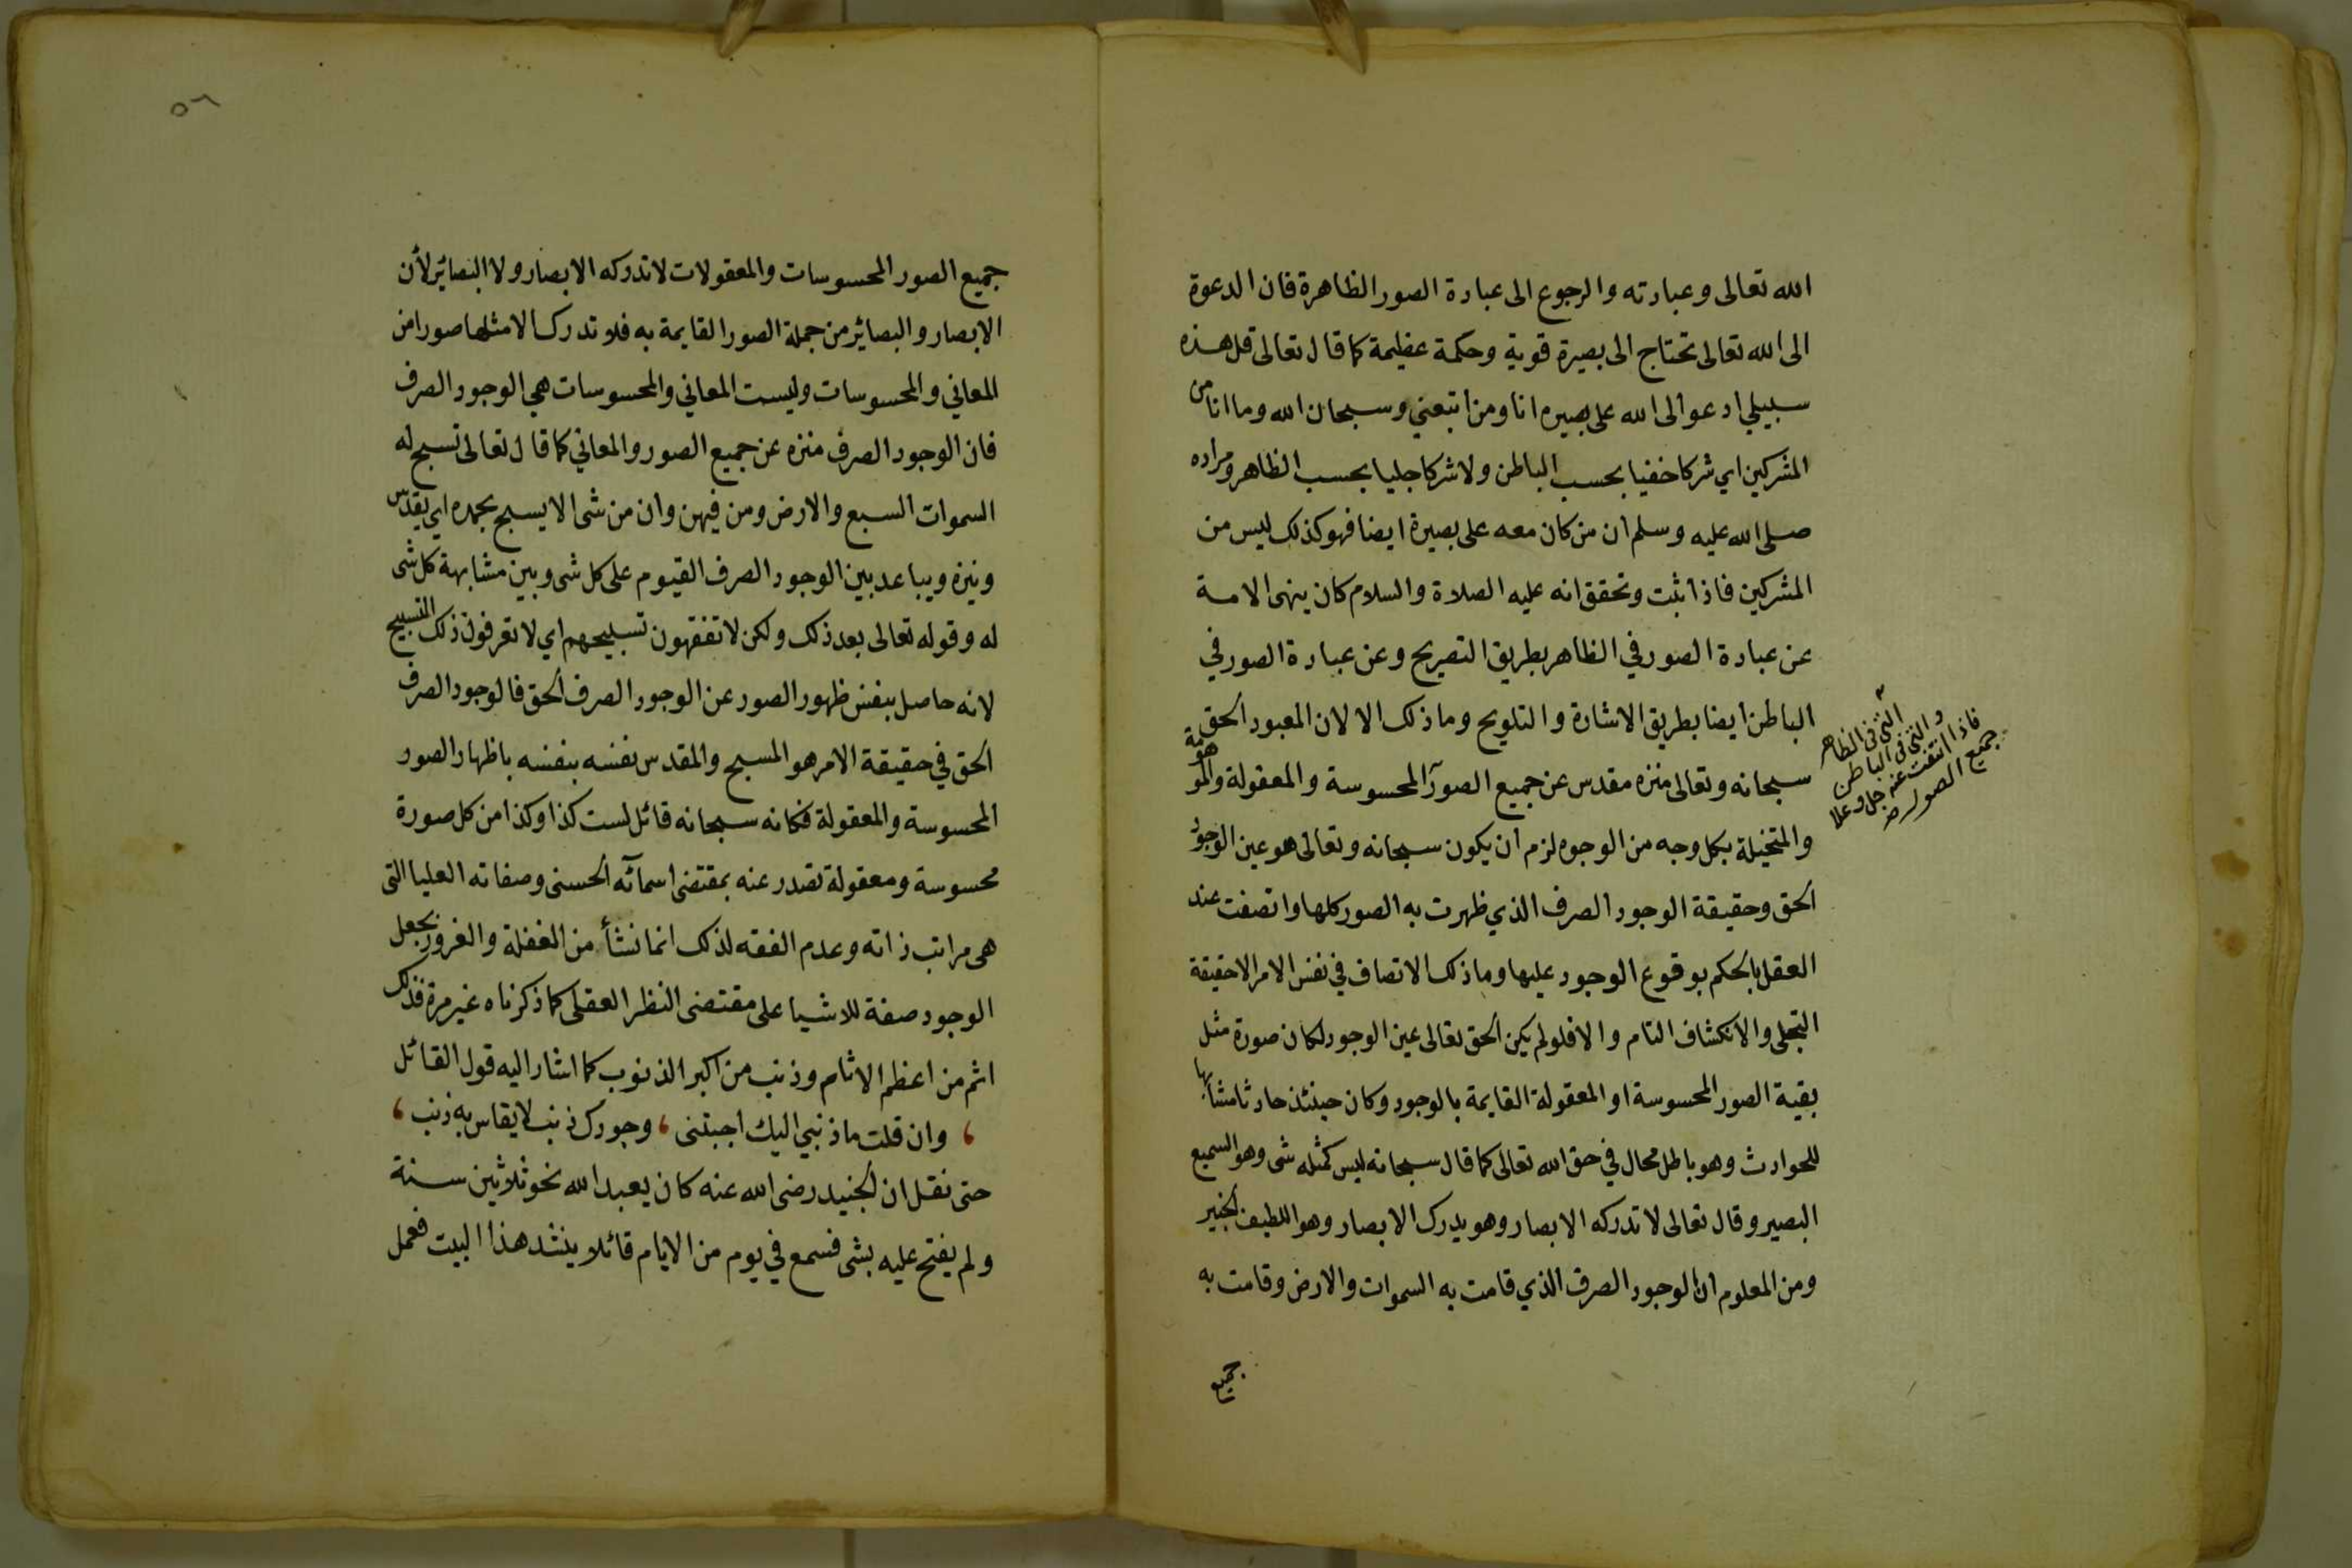 الله تعالى وعبادته والرجوع الى عبادة الصور الظاهرة فان الدعوة
الى الله تعالى تحتاج الى بصيرة قوية وحكمة عظيمة كما قال تعالى قل هذه
سبيلي ادعوا الى الله على بصيره انا ومن اتبعني وسبحان الله وما انا من
المشركين اي شركا خفيا بحسب الباطن ولا شركا جليا بحسب الظاهر ومراده
صلى الله عليه وسلم ان من كان معه على بصيرة ايضا فهو كذلك ليس من
المشركين فاذا ثبت وتحقق انه عليه الصلاة والسلام كان ينهى الامة
عن عبادة الصور في الظاهر بطريق التصريح وعن عبادة الصور في
الباطن ايضا بطريق الاشارة والتلويح وما ذلك الا لان المعبود الحق
سبحانه وتعالى منزه مقدس عن جميع الصور المحسوسة والمعقولة والموهومة
والمتخيلة بكل وجه من الوجوه لزم ان يكون سبحانه وتعالى هو عين الوجود
الحق وحقيقة الوجود الصرف الذي ظهرت به الصور كلها واتصفت عند
العقل بالحكم بوقوع الوجود عليها وما ذلك الاتصاف في نفس الامر الا حقيقة
التجلي والانكشاف التام والا فلو لم يكن الحق تعالى عين الوجود لكان صورة مثل
بقية الصور المحسوسة او المعقولة القايمة بالوجود وكان حينئذ حادثا مشابها
للحوادث وهو باطل محال في حق الله تعالى كما قال سبحانه ليس كمثله شى وهو السميع
البصير وقال تعالى لا تدركه الابصار وهو يدرك الابصار وهو اللطيف الخبير
ومن المعلوم ان الوجود الصرف الذي قامت به السموات والارض وقامت به
جميع
التى فى الظاهر
والتى فى الباطن
فاذا انتفت عنه جل وعلا
جميع الصور
٥٦
جميع الصور المحسوسات والمعقولات لا تدركه الابصار ولا البصائر لأن
الابصار والبصائر من جملة الصور القايمة به فلا تدرك الا مثلها صورا من
المعاني والمحسوسات وليست المعاني والمحسوسات هي الوجود الصرف
فان الوجود الصرف منزه عن جميع الصور والمعاني كما قال تعالى تسبح له
السموات السبع والارض ومن فيهن وان من شى الا يسبح بحمده اي يقدس
وينزه ويباعد بين الوجود الصرف القيوم على كل شى وبين مشابهة كل شى
له وقوله تعالى بعد ذلك ولكن لا تفقهون تسبيحهم اي لا تعرفون ذلك التسبيح
لانه حاصل بنفس ظهور الصور عن الوجود الصرف الحق فالوجود الصرف
الحق في حقيقة الامر هو المسبح والمقدس نفسه بنفسه باظهار الصور
المحسوسة والمعقولة فكانه سبحانه قائل لست كذا وكذا من كل صورة
محسوسة ومعقولة تصدر عنه بمقتضى اسمآئه الحسنى وصفاته العليا التى
هى مراتب ذاته وعدم الفقه لذلك انما نشأ من الغفلة والغرور بجعل
الوجود صفة للاشيا على مقتضى النظر العقلى كما ذكرناه غير مرة فذلك
اثم من اعظم الاثام وذنب من اكبر الذنوب كما اشار اليه قول القائل
، وان قلت ما ذنبي اليك اجبتنى ، وجودك ذنب لا يقاس به ذنب ،
حتى نقل ان الجنيد رضى الله عنه كان يعبد الله نحو ثلاثين سنة
ولم يفتح عليه بشى فسمع في يوم من الايام قائلا ينشد هذا البيت فعمل